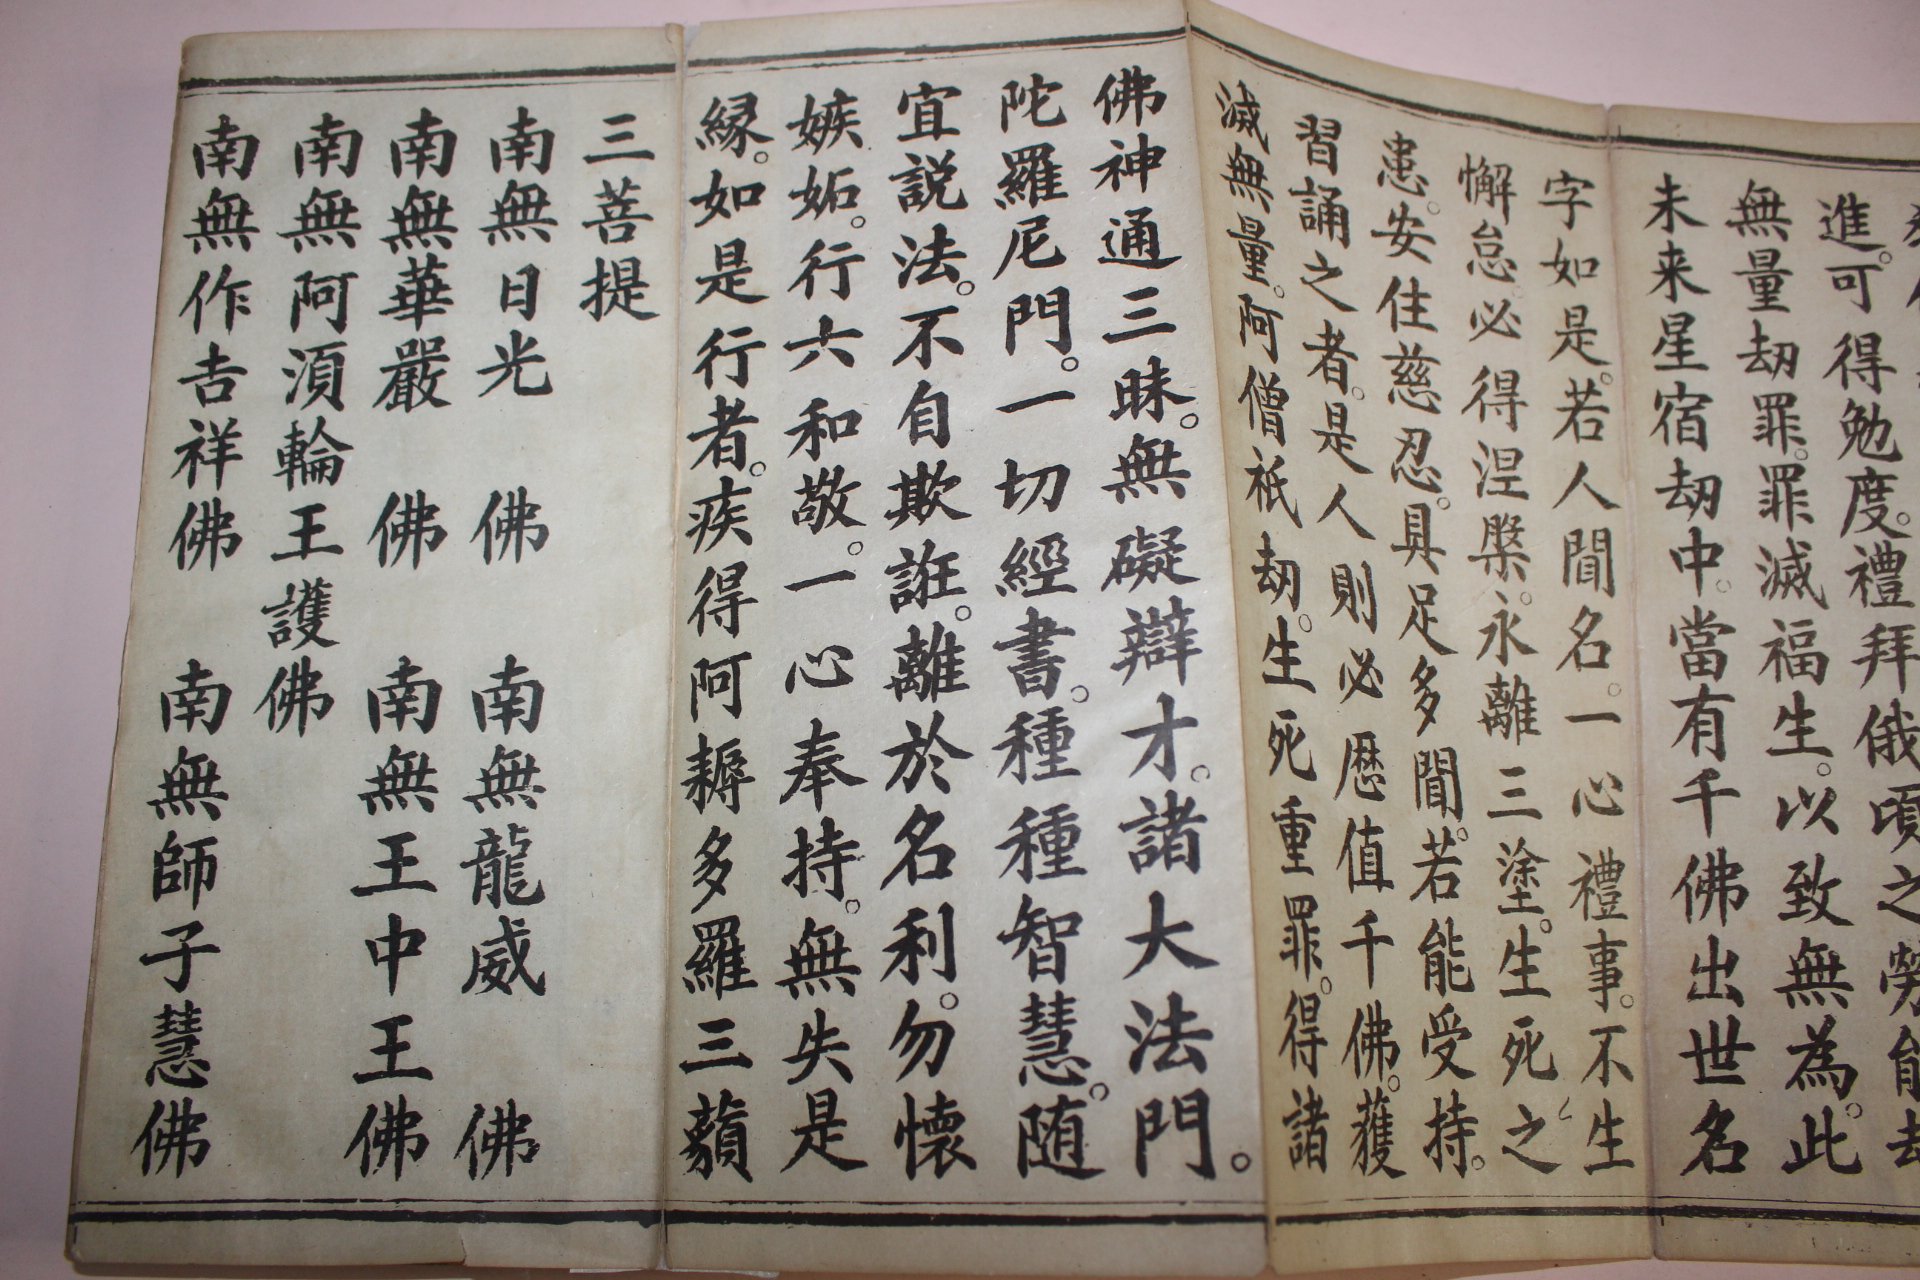 進。可得勉度。禮拜俄頃之勞能去
無量劫罪。罪滅福生。以致無為。此
未来星宿劫中。當有千佛出世名
字如是。若人聞名。一心禮事。不生
懈怠。必得涅槃。永離三塗。生死之
患。安住慈忍。具足多聞。若能受持。
習誦之者。是人則必歷值千佛。獲
滅無量。阿僧祇劫。生死重罪。得諸
佛神通三昧。無礙辯才。諸大法門。
陀羅尼門。一切經書。種種智慧。随
宜説法。不自欺誑。離於名利。勿懷
嫉妬。行六和敬。一心奉持。無失是
縁。如是行者。疾得阿耨多羅三藐
三菩提
南無日光佛 南無龍威佛
南無華嚴佛 南無王中王佛
南無阿須輪王護佛
南無作吉祥佛 南無師子慧佛